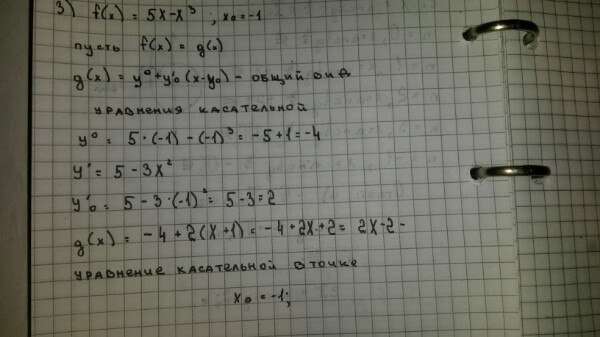 3) f(x) = 5x-x³; x₀=-1
пусть f(x) = g(x)
g(x) = y⁰+y'₀(x-y₀) - общий вид
уравнения касательной
y⁰ = 5·(-1) - (-1)³ = -5+1=-4
y' = 5 - 3x²
y'₀ = 5 - 3·(-1)² = 5-3=2
g(x) = -4+2(x+1) = -4+2x+2= 2x-2 -
уравнение касательной в точке
x₀ = -1;